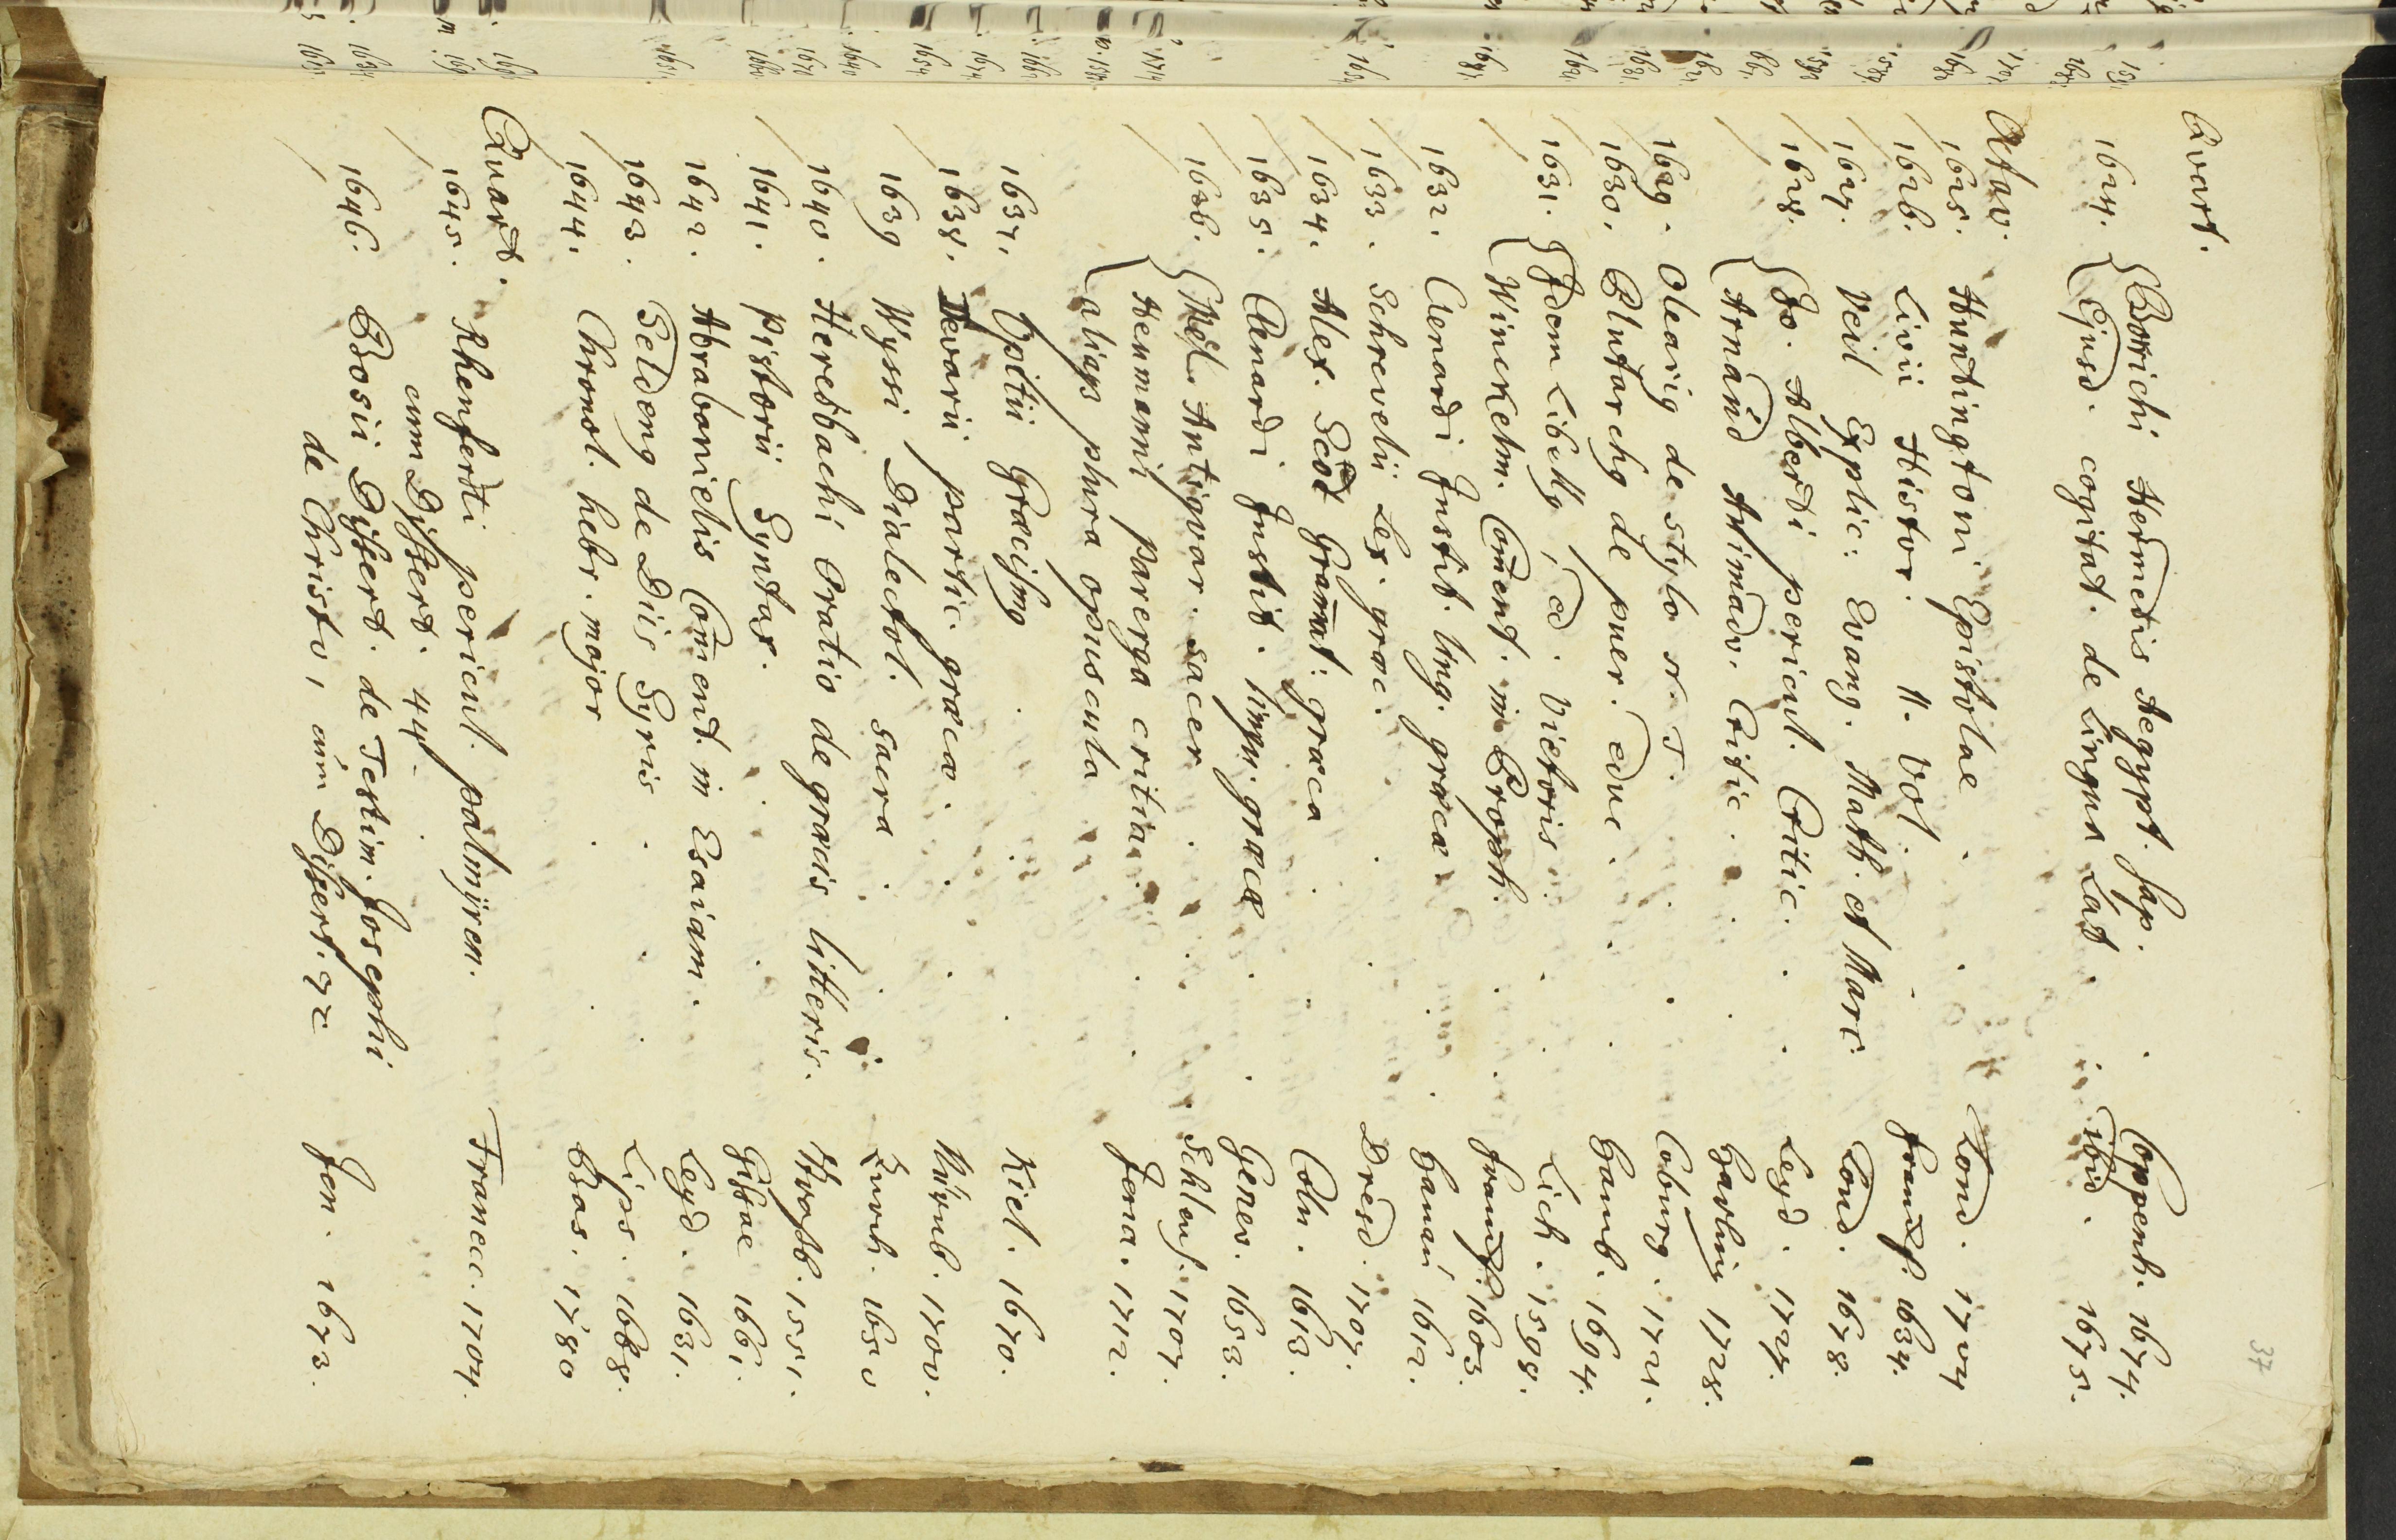 37
Qvart.
1624. { Borrichi Hermetis Aegypt. sap. . Coppenh. 1674.
Ejusd. cogitat. de Lingua Lat. . ibid. 1675.
Octav.
1625. Huntingtoni Epistolae . . Lond. 1704
1626. Livii Histor. II. vol. . Francf. 1634.
1627. Veil Explic: Evang. Math. et Marc. Lond. 1678.
1628. { Jo. Alberti pericul. Critic. . . Leyd. 1727.
Arnaud Animadv. Critic. . . Harling 1728.
1629. Olearius de stylo N. T. . . Coburg. 1721.
1630. Plutarchus de puer. educ. . . Hamb. 1694.
1631. { Idem Libellus, ed. Victoris . . Lich. 1598.
Winckelm. Com̄ent. in Proph. . Francf. 1603.
1632. Clenardi Instit. ling. graecae . . Hanau 1612.
1633. Schrevelii Lex. graec. . . Dresd. 1707.
1634. Alex. Scot Gram̄at: graeca . . Coln. 1613.
1635. Clenardi Instit. lingu. graecae . . Genev. 1653.
1636. { Antiqvar. sacer . . Schleus. 1707.
Heumanni parerga critica . . Jena. 1712.
aliaqs plura opuscula
1637. Opitii Graecismus . . Kiel. 1670.
1638. Devarii partic. graecae . . Nürnb. 1700.
1639 Wyssi Dialectol. sacra . . Zürch. 1650
1640. Heresbachi Oratio de graecis litteris. Strassb. 1551.
1641. Pistorii Syntax. . . Gissae 1661.
1642. Abrabanielis Com̄ent. in Esaiam. Leyd. 1631.
1643. Seldenus de Diis Syris . . Lips. 1668.
1644. Chronol. hebr. major . . Bas. 1580
Qvart.
1645. Rhenferdi pericul. palmyren. Franecc. 1704.
cum Dissert. 44.
1646. Bosii Dissert. de Testim. Josephi
de Christo, cum Dissert. 92 Jen. 1673.